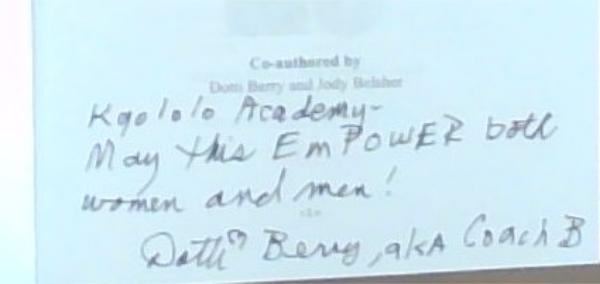 Co-authored by
Dotti Berry and Jody Belsher
Kgololo Academy-
May this EmPOWER both
women and men!
Dotti Berry, akA Coach B